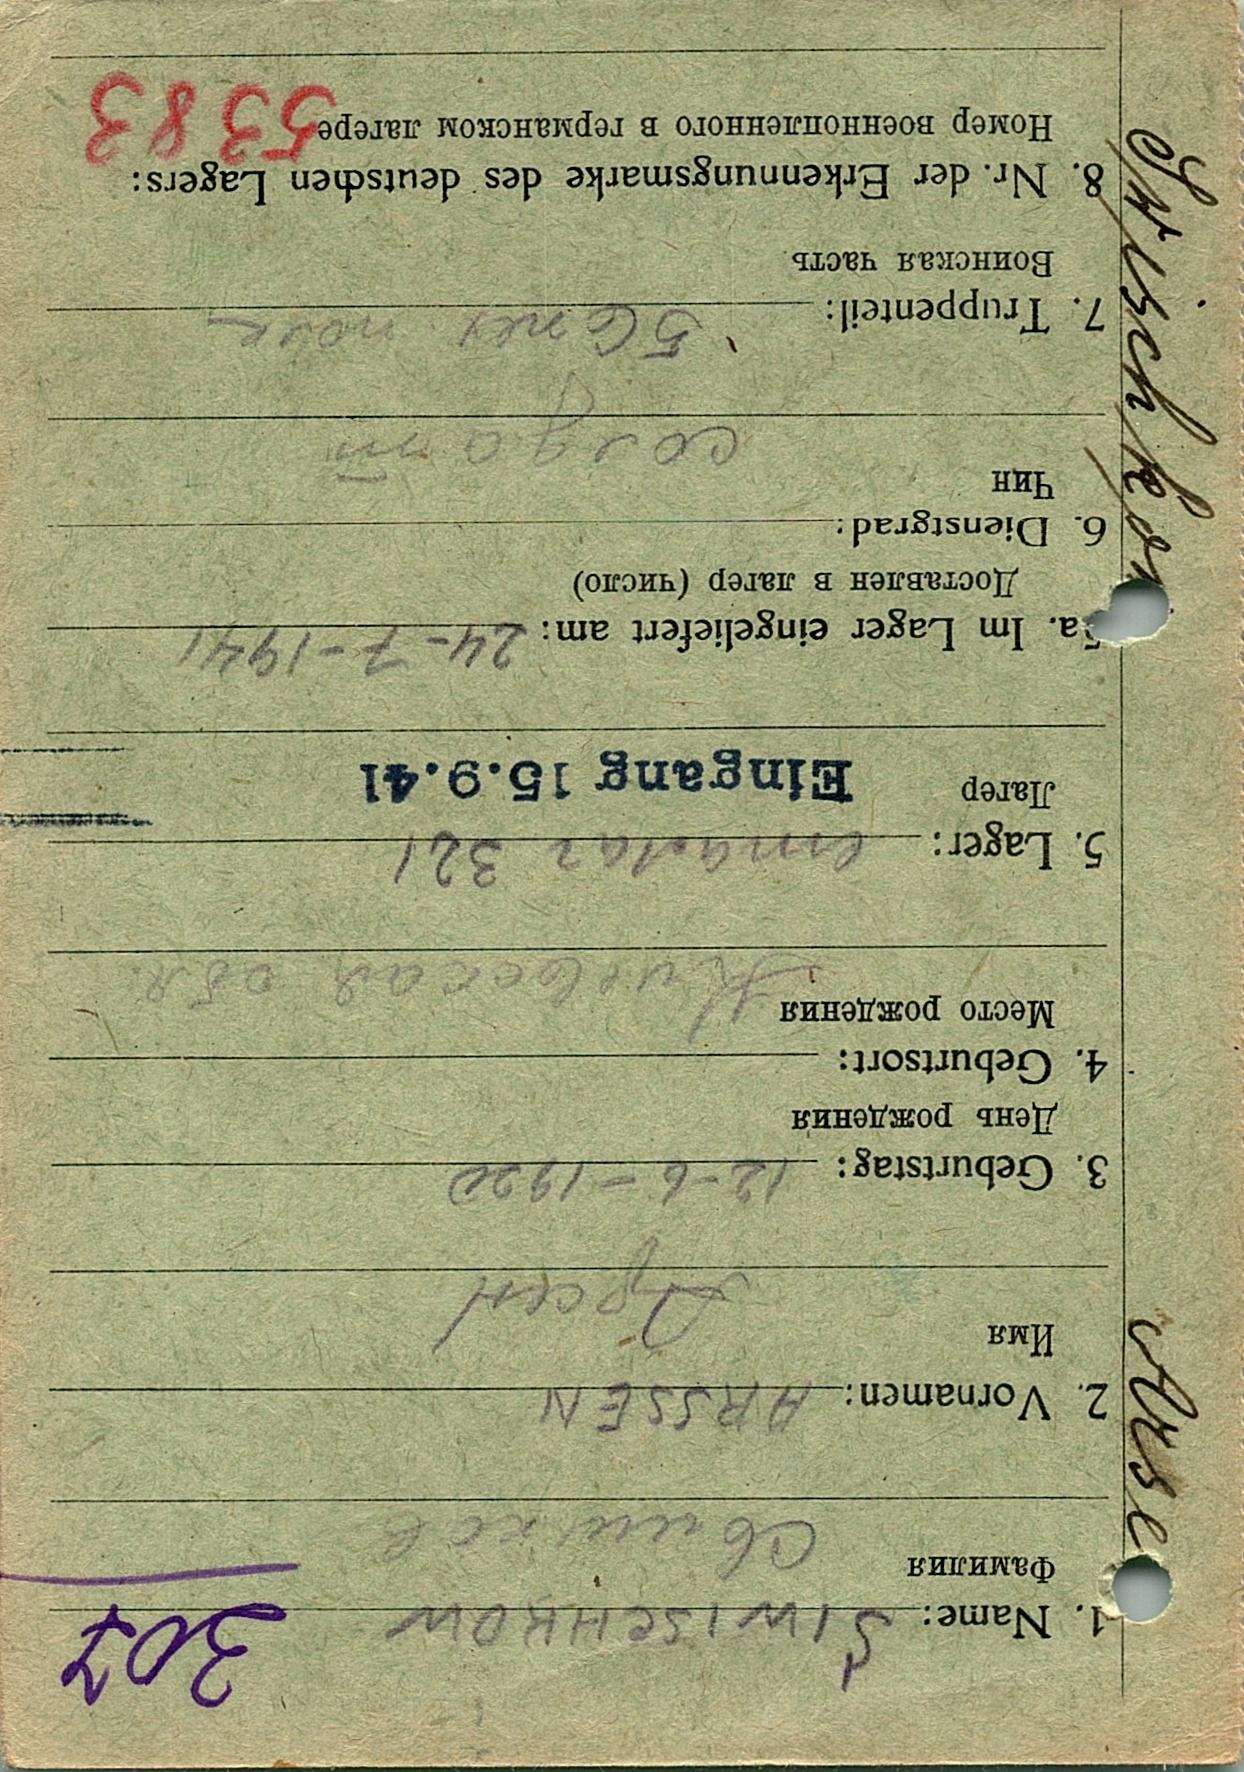 307
1. Name: SIWISCHKOW
Фамилия
Свишков
2. Vornamen: ARSSEN
Имя
Арсен
3. Geburtstag: 12-6-1920
День рождения
4. Geburtsort:
Место рождения
Киевская обл.
5. Lager: шталаг 321
Лагер
Eingang 15.9.41
5a. Im Lager eingeliefert am: 24-7-1941
Доставлен в лагер (число)
6. Dienstgrad:
Чин
солдат
7. Truppenteil: 56 пех полк
Воинская часть
8. Nr. der Erkennungsmarke des deutschen Lagers:
Номер военнопленного в германском лагере 5383
Arse